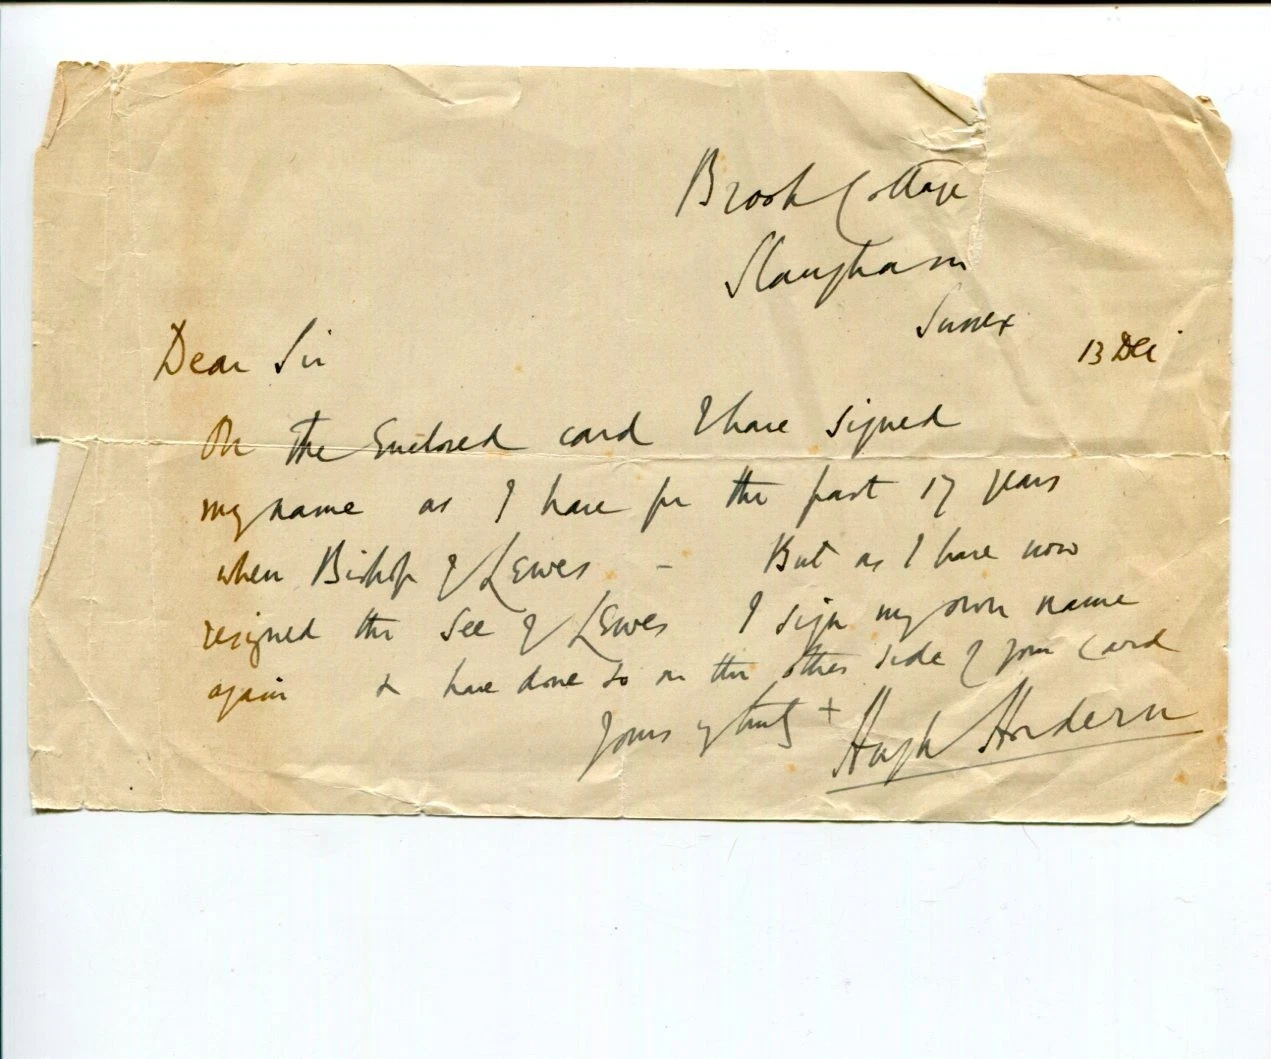 Brook Cottage
Slaugham
Sussex
13 Dec
Dear Sir
On the Enclosed card I have signed
my name as I have for the past 17 years
when Bishop of Lewes - But as I have now
resigned the See of Lewes I sign my own name
again & have done so on the other side of your card
Yours + Hugh Hordern